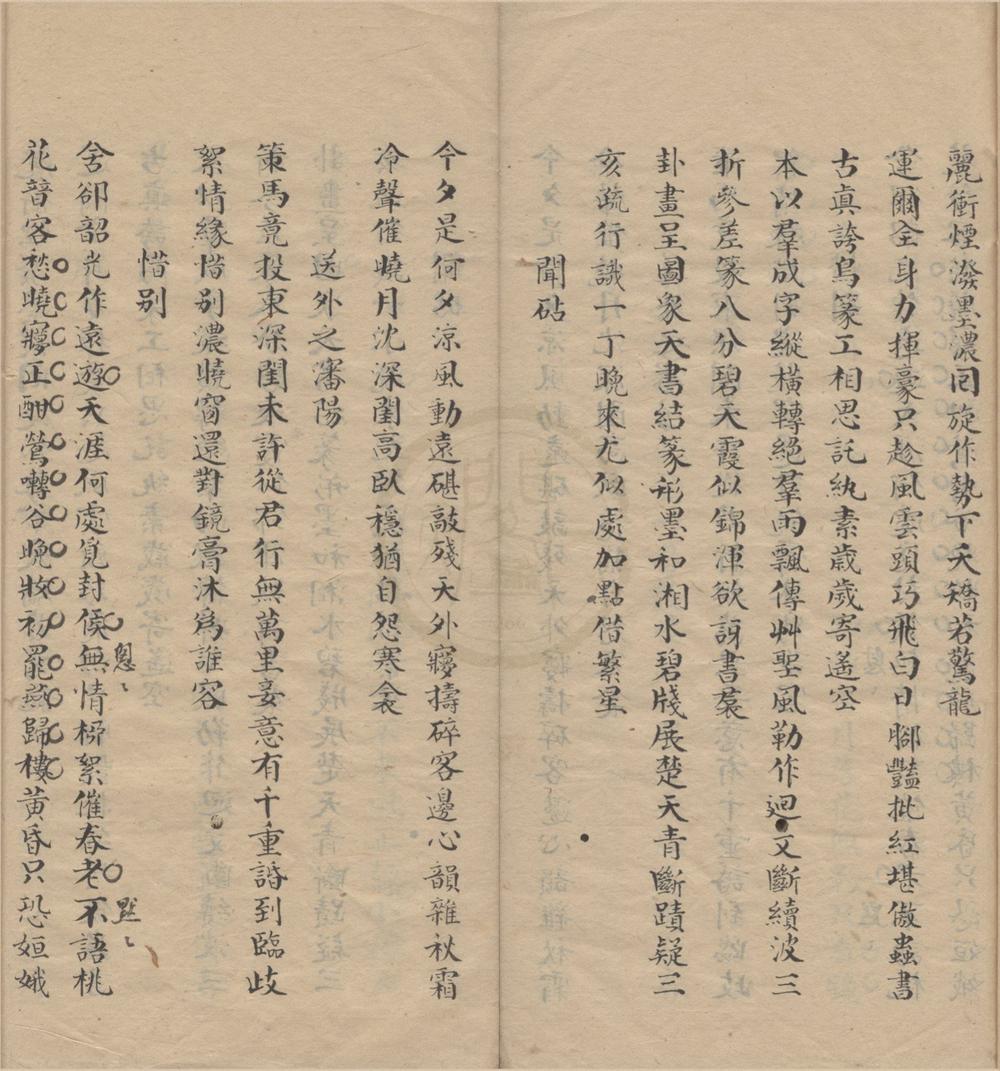 麗衝煙潑墨濃回旋作勢下夭矯若驚龍
運爾全身力揮豪只趁風雲頭巧飛白日腳豔批紅堪倣蟲書
古真誇鳥篆工相思託紈素歲歲寄遙空
本以羣成字縱橫轉絕羣雨飄傳艸聖風勒作迴文斷續波三
折參差篆八分碧天霞似錦渾欲訝書裠
卦畫呈圖象天書結篆形墨和湘水碧牋展楚天青斷蹟疑三
亥疏行識一丁晚來尤似處加點借繁星
聞砧
今夕是何夕涼風動遠碪敲殘天外寱擣碎客邊心韻雜秋霜
冷聲催曉月沈深閨高臥穩猶自怨寒衾
送外之瀋陽
策馬竟投東深閨未許從君行無萬里妾意有千重語到臨歧
絮情緣惜别濃曉窗還對鏡膏沐為誰容
惜别
舍卻韶光作遠遊天涯何處覓封侯無情桞絮催春老不語桃
恩〻
㸃〻
花暗客愁曉寱正酣鶯囀谷晚妝初罷燕歸樓黃昏只恐姮娥